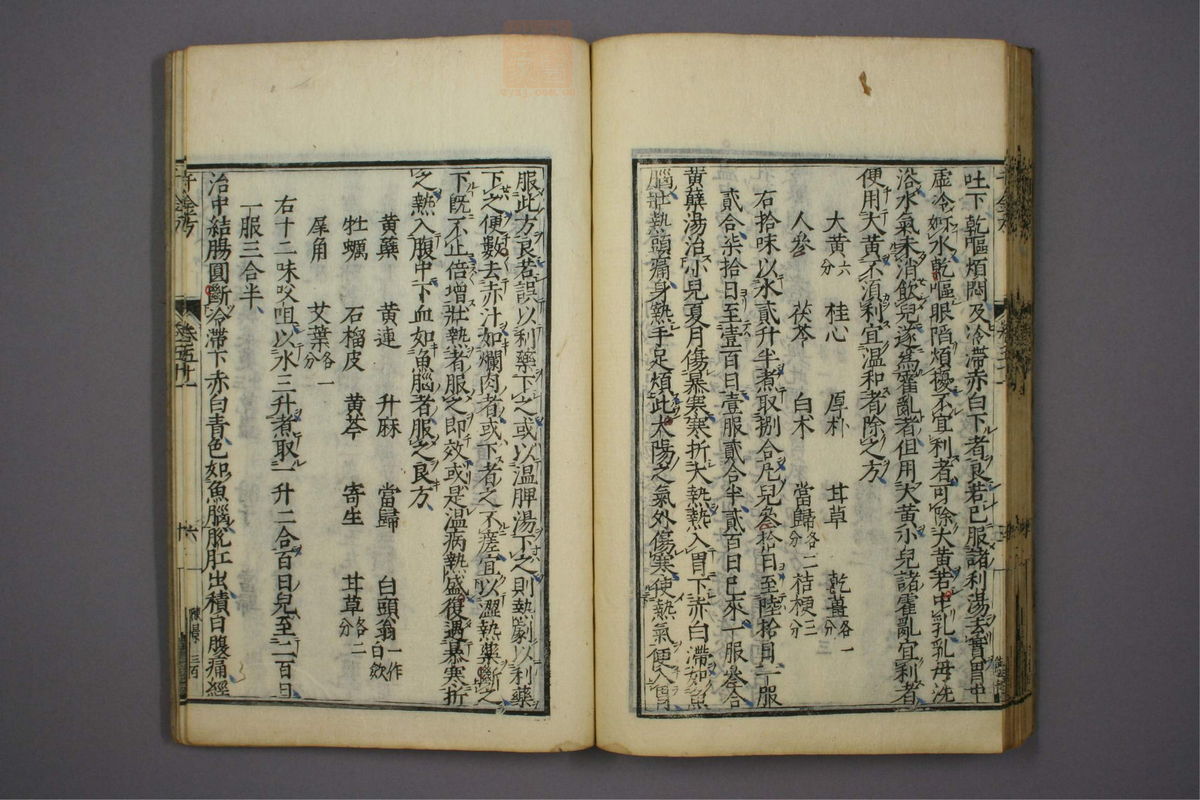 吐下乾嘔煩悶及冷滯赤白下者良若已服諸利湯去實胃中
虛冷如水乾嘔眼陷煩擾不宜利者可除大黃若中乳乳母洗
浴水氣未消飲兒遂爲霍亂者但用大黃小兒諸霍亂宜利者
便用大黃不須利宜溫和者除之方
大黃六分 桂心 厚朴 甘草 乾薑各一分
人參 茯苓 白术 當歸各二分 桔梗三分
右拾味以水貳升半煮取捌合凡兒叄拾日至陸拾日一服
貳合柒拾日至壹百日壹服貳合半貳百日已來一服叄合
黃蘗湯治小兒夏月傷暴寒寒折大熱熱入胃下赤白滯如魚
腦壯熱頭痛身熱手足煩此太陽之氣外傷寒使熱氣便入胃
服此方良若誤以利藥下之或以溫脾湯下之則熱劇以利藥
下之便數去赤汁如爛肉者或下之不瘥宜以澀熱藥斷之
下既不止倍增壯熱者服之即效或是溫病熱盛復遇暴寒折
之熱入腹中下血如魚腦者服之良方
黃蘗 黃連 升麻 當歸 白頭翁一作白歛
牡蠣 石榴皮 黃芩 寄生 甘草各二分
犀角 艾葉各一分
右十二味㕮咀以水三升煮取一升二合百日兒至二百日
一服三合半
治中結腸圓斷冷滯下赤白青色如魚腦脫肛出積日腹痛經